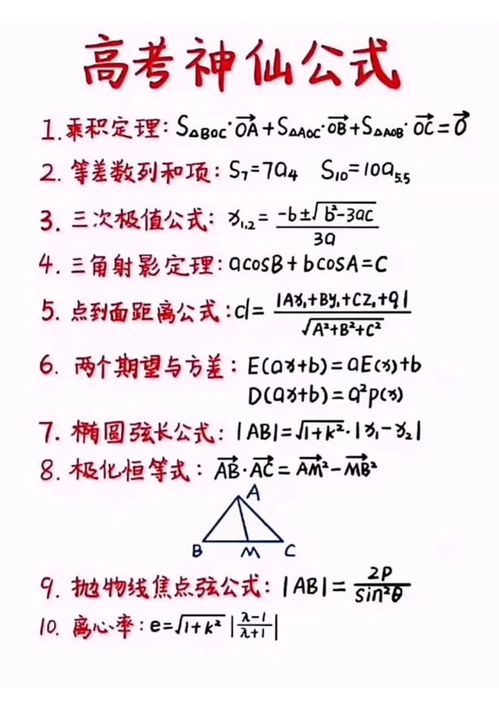 高考神仙公式
1.乘积定理:S△BOC·OA→+S△AOC·OB→+S△AOB·OC→=O→
2.等差数列和项:S₇=7a₄ S₁₀=10a₅.₅
3.三次极值公式:x₁,₂=(-b±√(b²-3ac))/3a
4.三角射影定理:acosB+bcosA=C
5.点到面距离公式:d=|Ax₁+By₁+CZ₁+q|/√(A²+B²+C²)
6.两个期望与方差:E(ax+b)=aE(x)+b
D(ax+b)=a²p(x)
7.椭圆弦长公式:|AB|=√(1+k²)·|x₁-x₂|
8.极化恒等式:AB→·AC→=AM→²-MB→²
A
B M C
9.抛物线焦点弦公式:|AB|=2P/sin²θ
10.离心率:e=√(1+k²)|(λ-1)/(λ+1)|